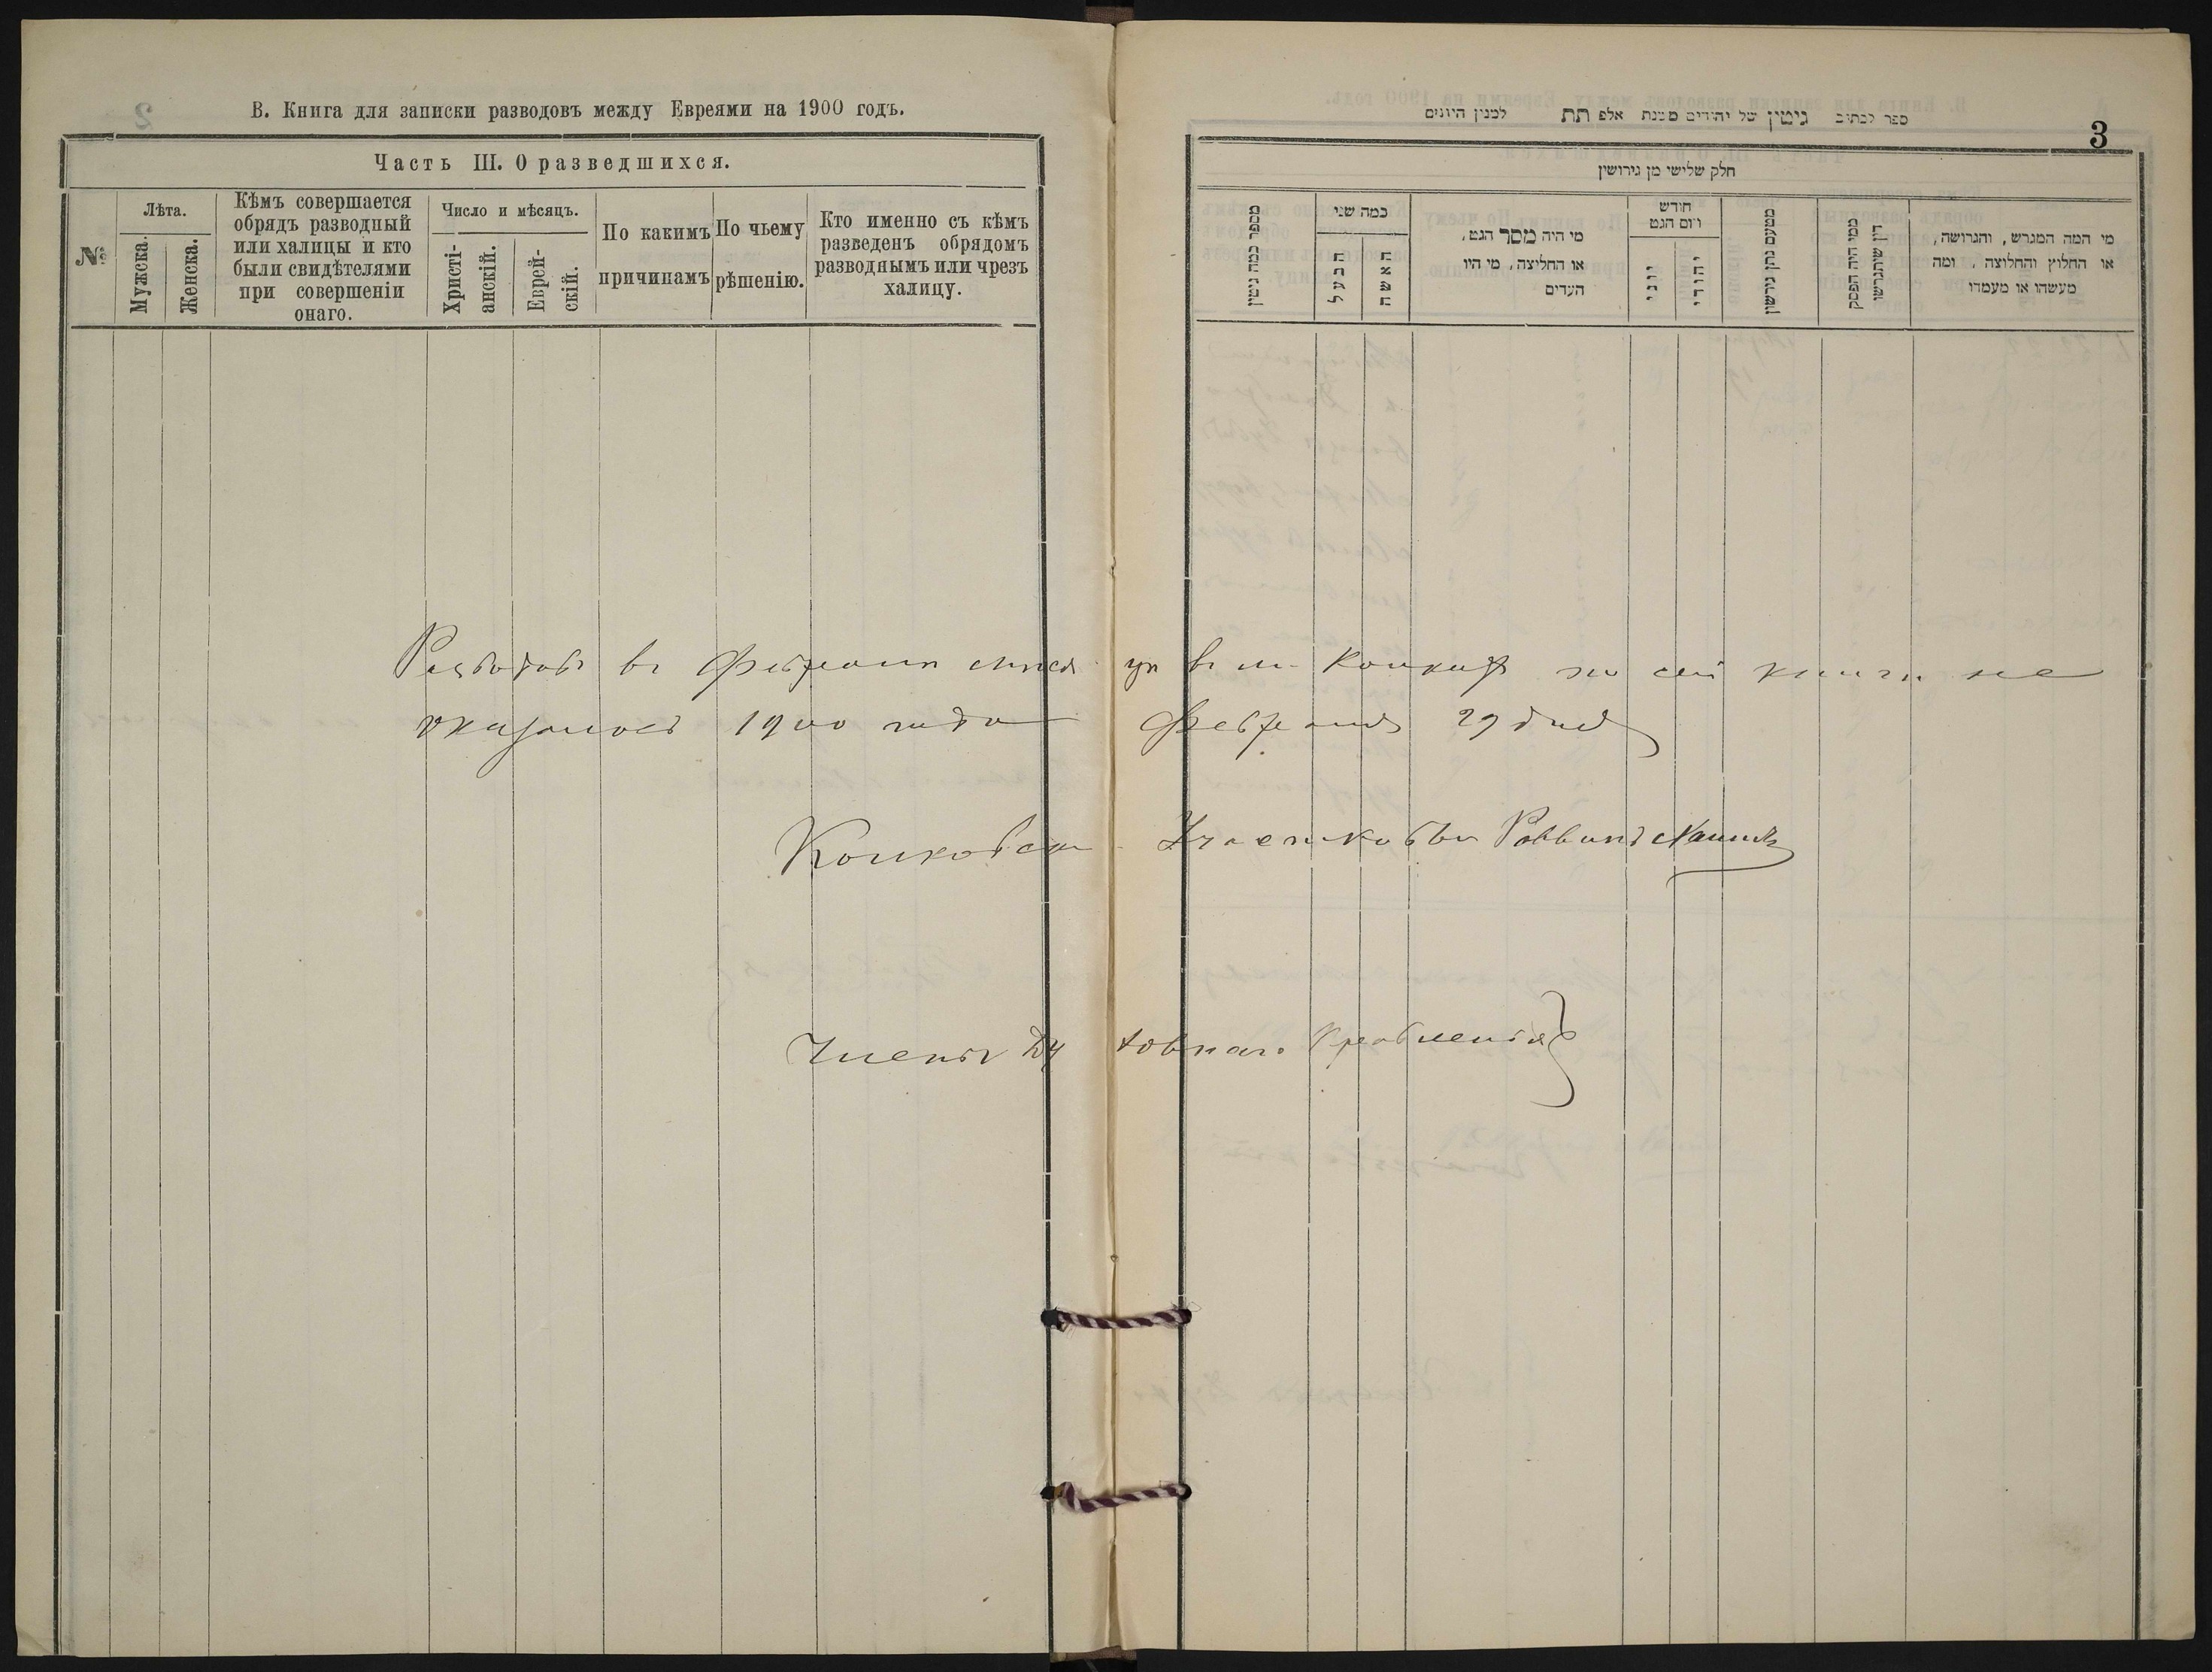 В. Книга для записки разводовъ между Евреями на 1900 годъ.
Часть III. О разведшихся.
№
Лѣта.
Мужска.
Женска.
Кѣмъ совершается
обрядъ разводный
или халицы и кто
были свидѣтелями
при совершеніи
онаго.
Число и мѣсяцъ.
Христі-
анскій.
Еврей-
скій.
По какимъ
причинамъ
По чьему
рѣшенію.
Кто именно съ кѣмъ
разведенъ обрядомъ
разводнымъ или чрезъ
халицу.
ספר לכתוב גיטין של יהודים משנת אלף תת למנין היונים
3
חלק שלישי מן גירושין
מספר כמה גיטין
כמה שני
הבעל
האשה
מי היה מסדר הגט,
או החליצה, מי היו
העדים
חודש
ויום הגט
יוני
יהודי
מטעם נתן גירושין
מי המה המגרש, והגרושה,
או החלוץ והחלוצה, ומה
מעשהו או מעמדו
Разводовъ въ Февралѣ мѣсяцѣ въ м. Колкахъ по сей книги не
оказалось 1900 года Февраля 29 дня
Колковскій Участковый Раввинъ
Члены Духовнаго Правленія